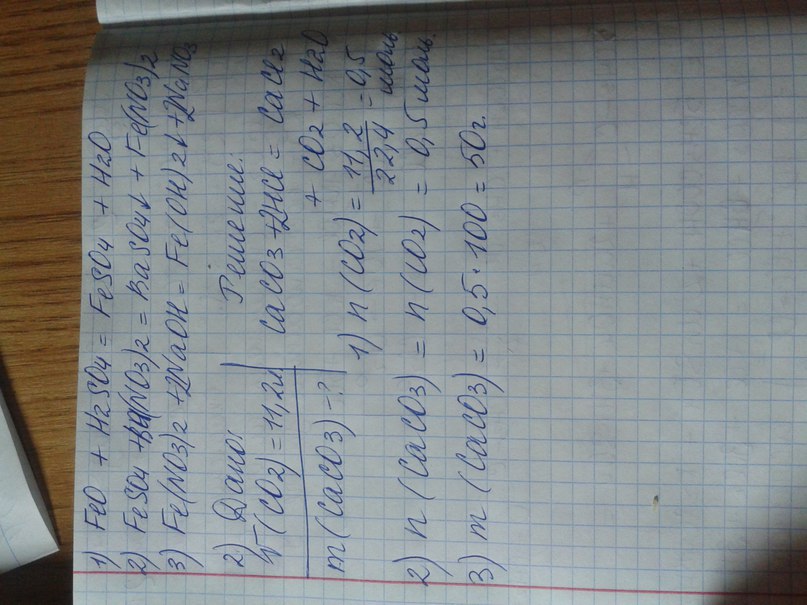 1) FeO + H2SO4 = FeSO4 + H2O
2) FeSO4 + Ba(NO3)2 = BaSO4↓ + Fe(NO3)2
3) Fe(NO3)2 + 2NaOH = Fe(OH)2↓ + 2NaNO3
2) Дано:
V(CO2) = 11,2л
m(CaCO3) - ?
Решение.
CaCO3 + 2HCl = CaCl2
+ CO2 + H2O
1) n(CO2) = 11,2/22,4 = 0,5 моль
2) n(CaCO3) = n(CO2) = 0,5 моль.
3) m(CaCO3) = 0,5 · 100 = 50г.